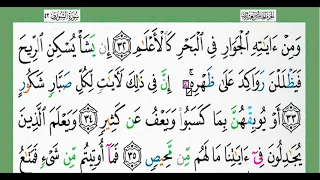 سورة الشورى ٤٢
وَمِنْ ءَايَٰتِهِ الْجَوَارِ فِي الْبَحْرِ كَالْأَعْلَٰمِ ٣٢ إِن يَشَأْ يُسْكِنِ الرِّيحَ
فَيَظْلَلْنَ رَوَاكِدَ عَلَىٰ ظَهْرِهِ إِنَّ فِي ذَٰلِكَ لَآيَاتٍ لِّكُلِّ صَبَّارٍ شَكُورٍ
٣٣ أَوْ يُوبِقْهُنَّ بِمَا كَسَبُوا وَيَعْفُ عَن كَثِيرٍ ٣٤ وَيَعْلَمَ الَّذِينَ
يُجَٰدِلُونَ فِي ءَايَٰتِنَا مَا لَهُم مِّن مَّحِيصٍ ٣٥ فَمَا أُوتِيتُم مِّن شَيْءٍ فَمَتَٰعُ